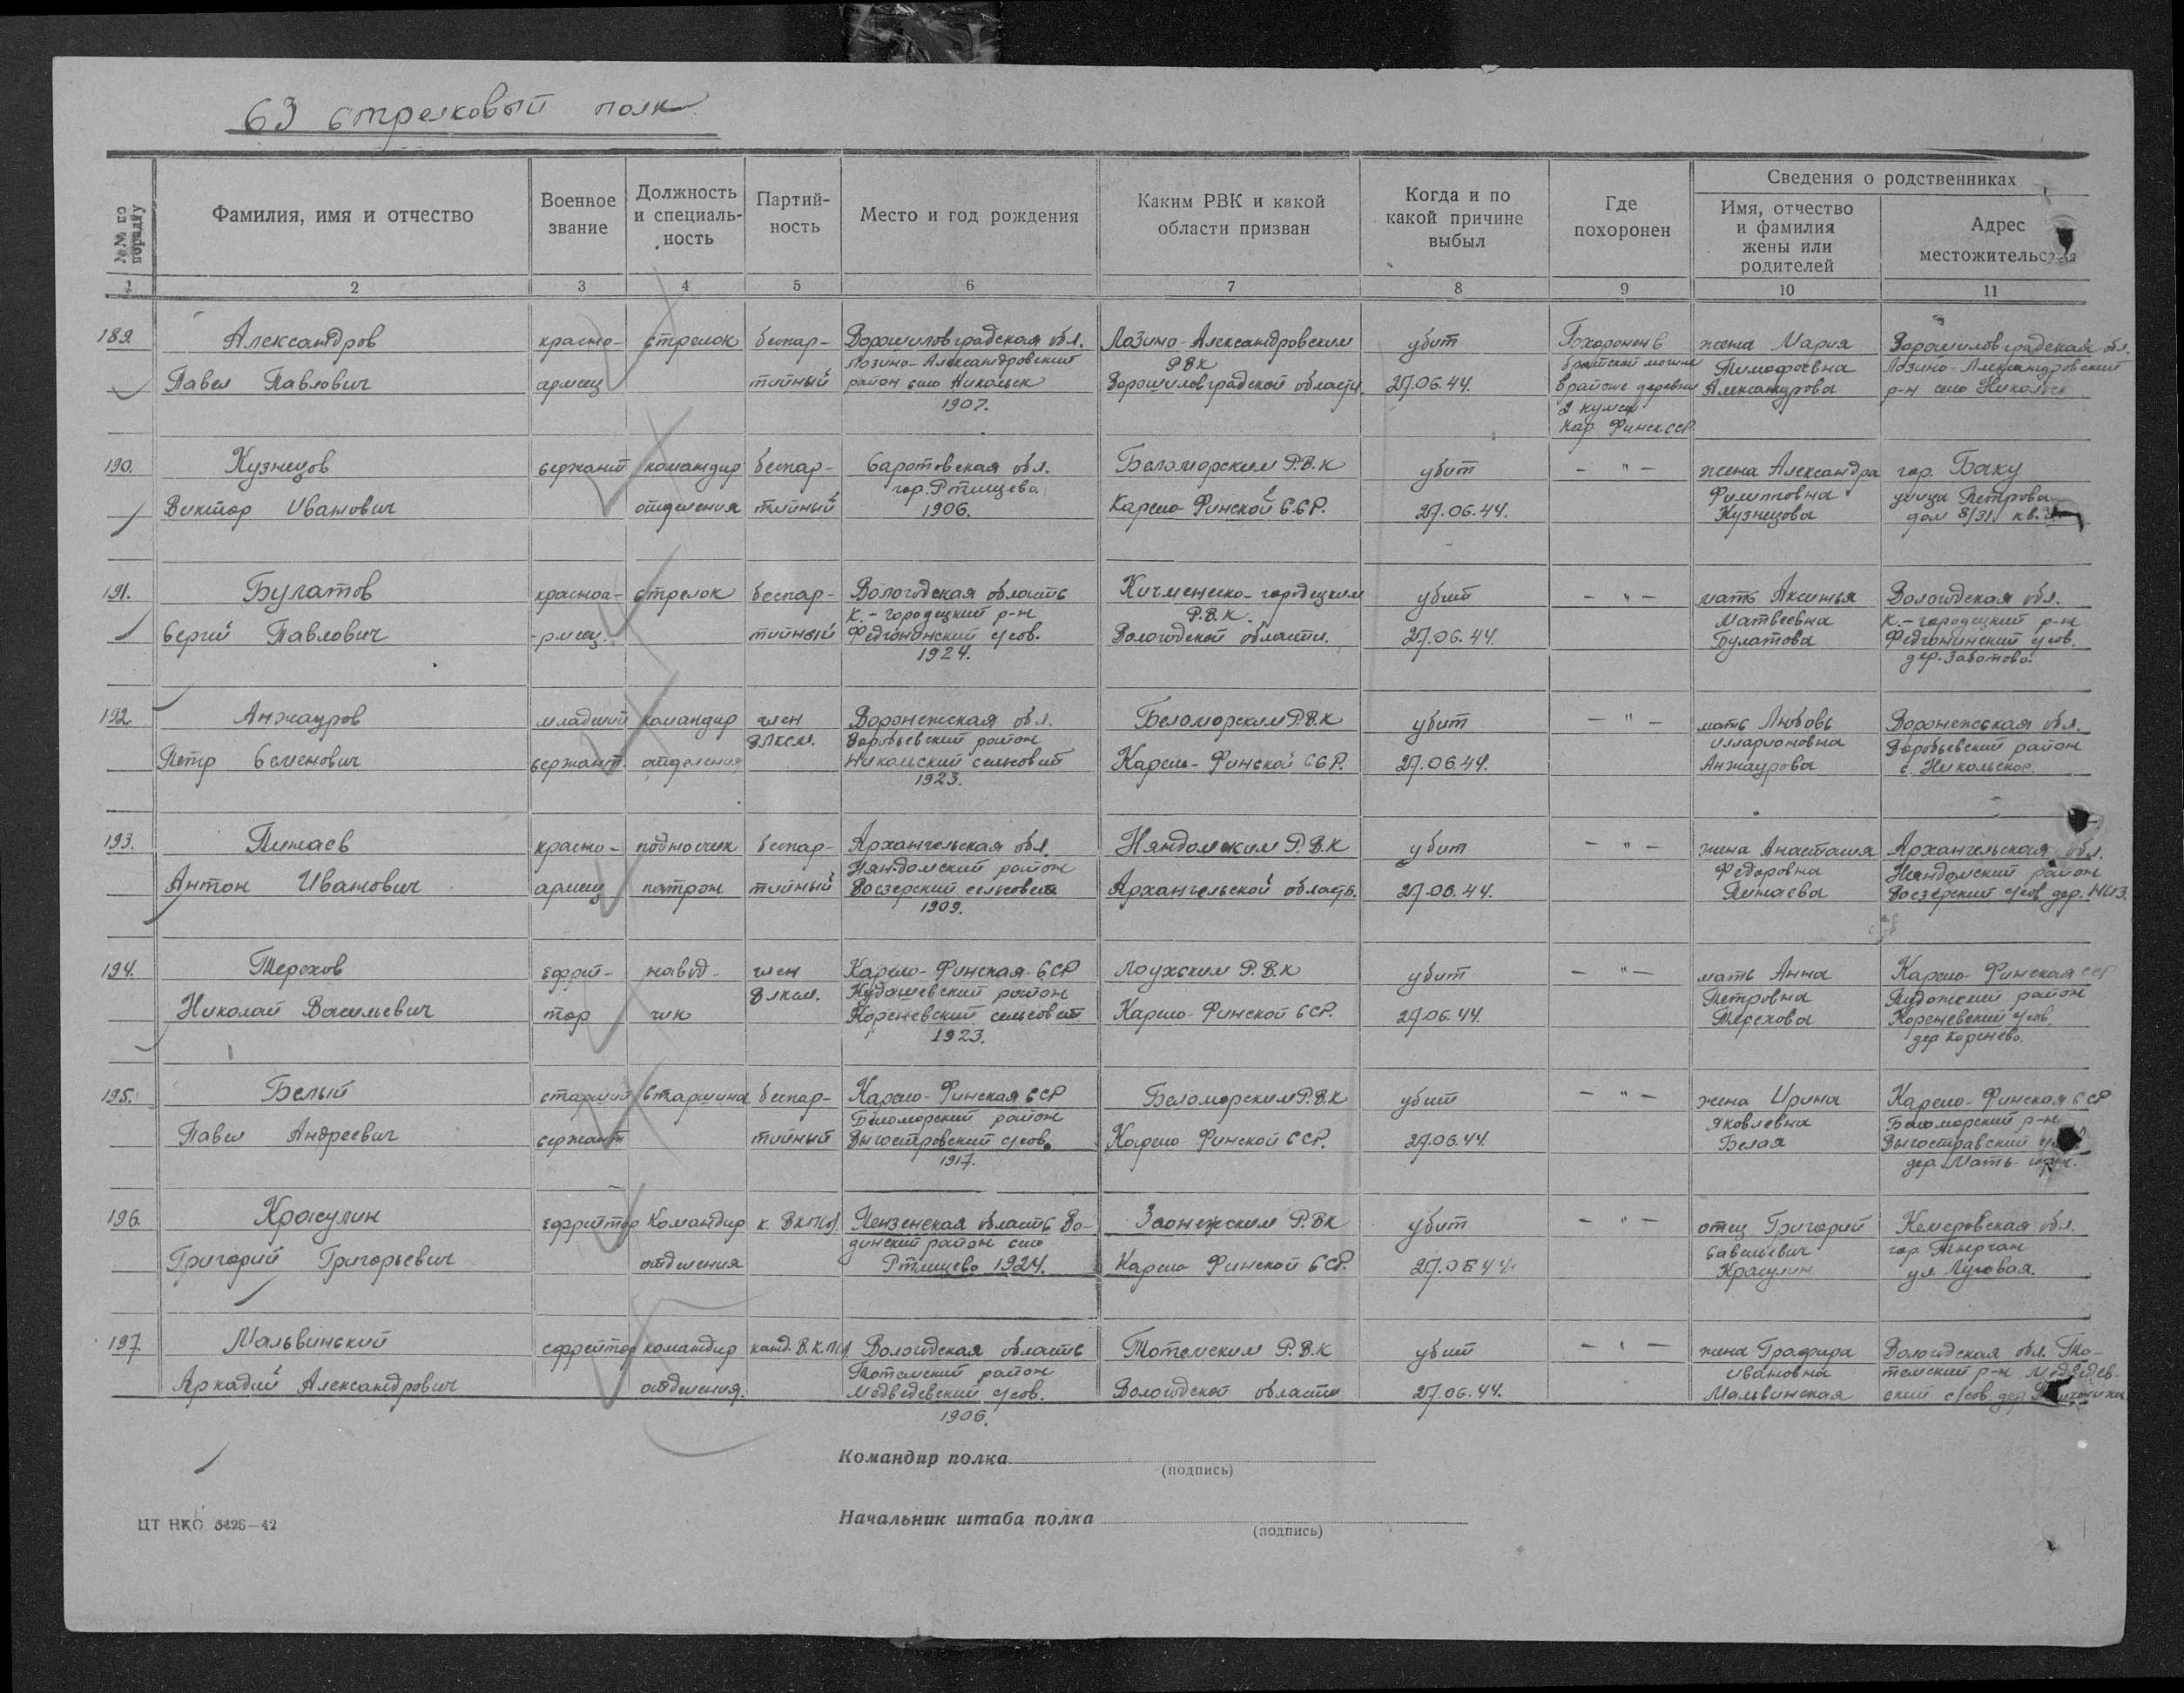 63 стрелковый полк
№№ по порядку
Фамилия, имя и отчество
Военное звание
Должность и специаль-ность
Партий-ность
Место и год рождения
Каким РВК и какой области призван
Когда и по какой причине выбыл
Где похоронен
Сведения о родственниках
Имя, отчество и фамилия жены или родителей
Адрес местожительства
1 2 3 4 5 6 7 8 9 10 11
189. Александров красно- стрелок беспар- Ворошиловградская обл. Лозино-Александровским убит Похоронен в жена Мария Ворошиловградская обл.
Лозино-Александровский РВК братской могиле Тимофеевна Лозино-Александровский
Павел Павлович армеец тийный район село Никольск Ворошиловградской области. 27.06.44. в районе деревни Александрова р-н село Никольск
1907. 2 кумса
Кар. Финск.ССР.
190. Кузнецов сержант командир беспар- Саратовская обл. Беломорским Р.В.К убит — " — жена Александра гор. Баку
гор. Ртищево Филипповна улица Петрова
Виктор Иванович отделения тийный 1906. Карело-Финской ССР. 27.06.44. Кузнецова дом 8/31 кв.
191. Булатов красноа- стрелок беспар- Вологодская область Кичменгско-городецким убит — " — мать Аксинья Вологодская обл.
К.-городецкий р-н Р.В.К. Матвеевна К.-городецкий р-н
Сергий Павлович -рмеец. тийный с/сов. Вологодской области. 27.06.44. Булатова с/сов.
1924. дер. Заботово.
192. Анжауров младший командир член Воронежская обл. Беломорским Р.В.К убит — " — мать Любовь Воронежская обл.
ВЛКСМ. Воробьевский район Илларионовна Воробьевский район
Петр Семенович сержант отделения Никольский сельсовет Карело-Финской ССР. 27.06.44. Анжаурова с. Никольское.
1923.
193. Пинаев красно- подносчик беспар- Архангельская обл. Няндомским Р.В.К убит — " — жена Анастасия Архангельская обл.
Няндомский район Федоровна Няндомский район
Антон Иванович армеец патрон тийный Воезерский сельсовет Архангельской область. 27.06.44. Пинаева Воезерский с/сов дер. Низ.
1909.
194. Терехов ефрей- навод- член Карело-Финская ССР Лоухским Р.В.К убит — " — мать Анна Карело-Финская ССР
ВЛКСМ. район Петровна Пудожский район
Николай Васильевич тор чик Кореневский сельсовет Карело-Финской ССР. 27.06.44. Терехова Кореневский с/сов
1923. дер Коренево.
195. Белый старший старшина беспар- Карело-Финская ССР Беломорским Р.В.К убит — " — жена Ирина Карело-Финская ССР
Беломорский район Яковлевна Беломорский р-н
Павел Андреевич сержант тийный Выгостровский с/сов. Карело Финской ССР. 27.06.44. Белая Выгостравский
1917. дер. Мать
196. Красулин ефрейтор Командир к. ВКП(б). Пензенская область Во- Заонежским Р.ВК убит — " — отец Григорий Кемеровская обл.
динский район село Савельевич гор.
Григорий Григорьевич отделения Ртищево 1924. Карело Финской ССР. 27.06 44. Красулин ул. Луговая.
197. Мальвинский ефрейтор командир канд. В.К.П(б). Вологодская область Тотемским Р.В.К убит — " — жена Графира Вологодская обл. То-
Тотемский район Ивановна темский р-н Медведев-
Аркадий Александрович отделения. Медведевский с/сов. Вологодской области 27.06.44. Мальвинская ский с/сов. дер.
1906.
Командир полка
(подпись)
Начальник штаба полка
(подпись)
ЦТ НКО 5426—42